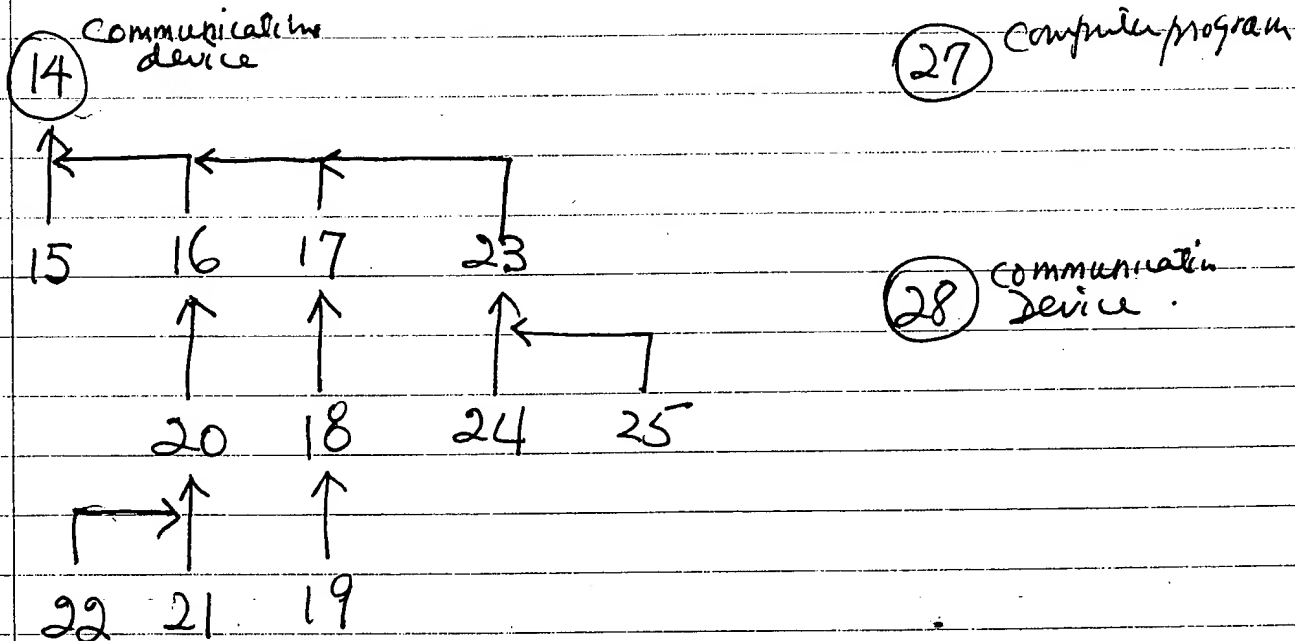 14 Communication
device
27 Computer program
15 16 17 23
28 Communication
Device.
20 18 24 25
22 21 19